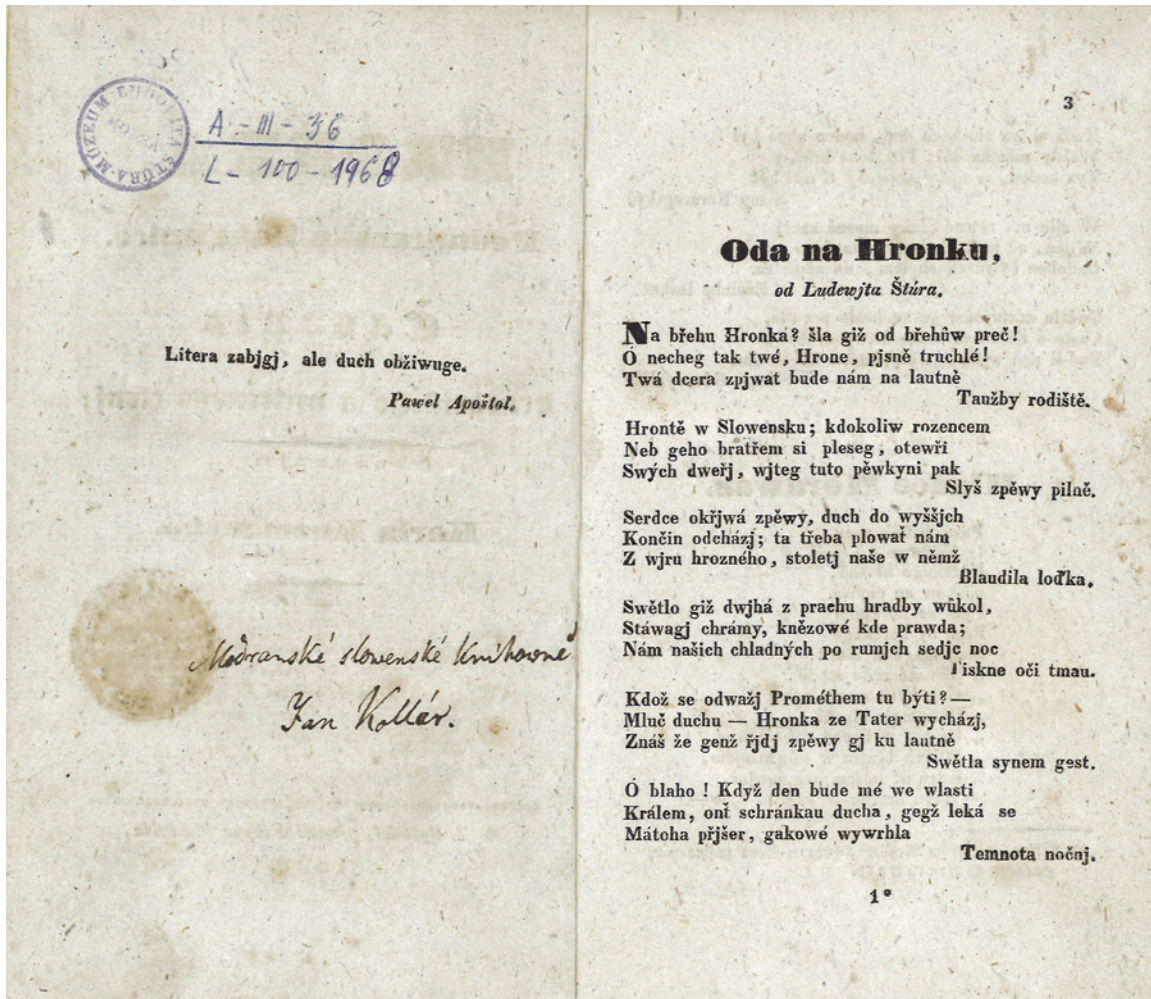 MÚZEUM ĽUDOVÍTA ŠTÚRA
A - III - 36
L - 100 - 1968
Litera zabjgj, ale duch obžiwuge.
Pawel Apoštol.
Modranské slowenské knihowně
Jan Kollár.
3
Oda na Hronku,
od Ludewjta Štúra.
Na břehu Hronka? šla giž od břehůw preč!
Ó necheg tak twé, Hrone, pjsně truchlé!
Twá dcera zpjwat bude nám na lautně
Taužby rodiště.
Hrontě w Slowensku; kdokoliw rozencem
Neb geho bratřem si pleseg, otewři
Swých dweřj, wjteg tuto pěwkyni pak
Slyš zpěwy pilně.
Serdce okřjwá zpěwy, duch do wyššjch
Končin odcházj; ta třeba plowať nám
Z wjru hrozného, stoletj naše w němž
Blaudila loďka.
Swětlo giž dwjhá z prachu hradby wůkol,
Stáwagj chrámy, knězowé kde prawda;
Nám našich chladných po rumjch sedjc noc
Tiskne oči tmau.
Kdož se odwažj Prométhem tu býti? —
Mluč duchu — Hronka ze Tater wycházj,
Znáš že genž řjdj zpěwy gj ku lautně
Swětla synem gest.
Ó blaho! Když den bude mé we wlasti
Králem, onť schránkau ducha, gegž leká se
Mátoha přjšer, gakowé wywrhla
Temnota nočnj.
1*